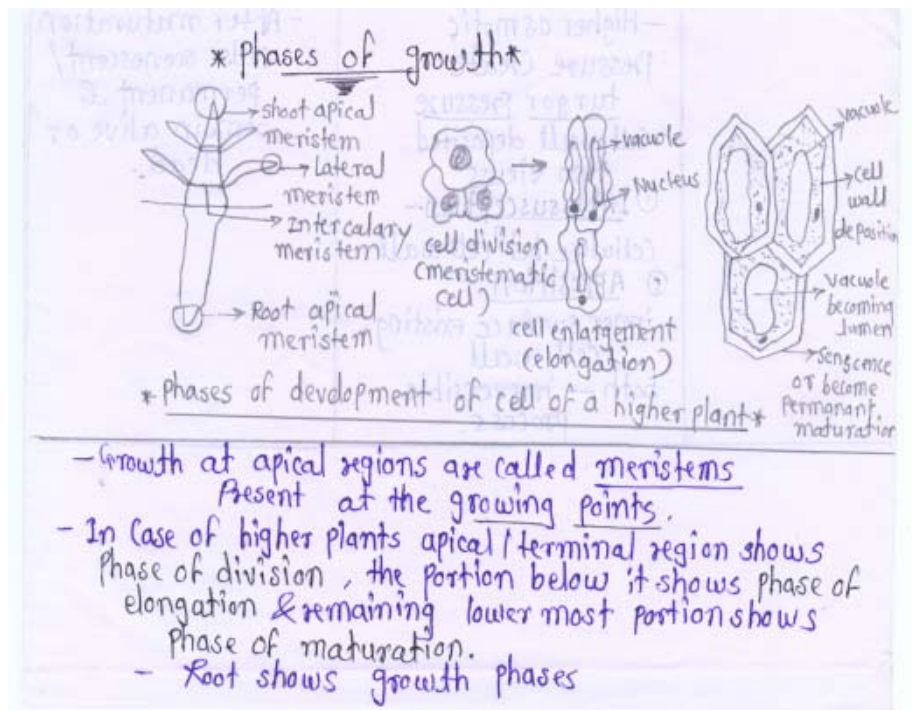 *Phases of growth*
shoot apical
meristem
Lateral
meristem
Intercalary
meristem
Root apical
meristem
cell division
(meristematic
cell)
vacuole
Nucleus
cell enlargement
(elongation)
vacuole
cell
wall
deposition
vacuole
becoming
lumen
Senescence
or become
Permanant.
maturation
*Phases of development of cell of a higher plant*
- Growth at apical regions are called meristems
Present at the growing points.
- In Case of higher plants apical/terminal region shows
Phase of division, the portion below it shows phase of
elongation & remaining lower most portion shows
Phase of maturation.
- Root shows growth phases